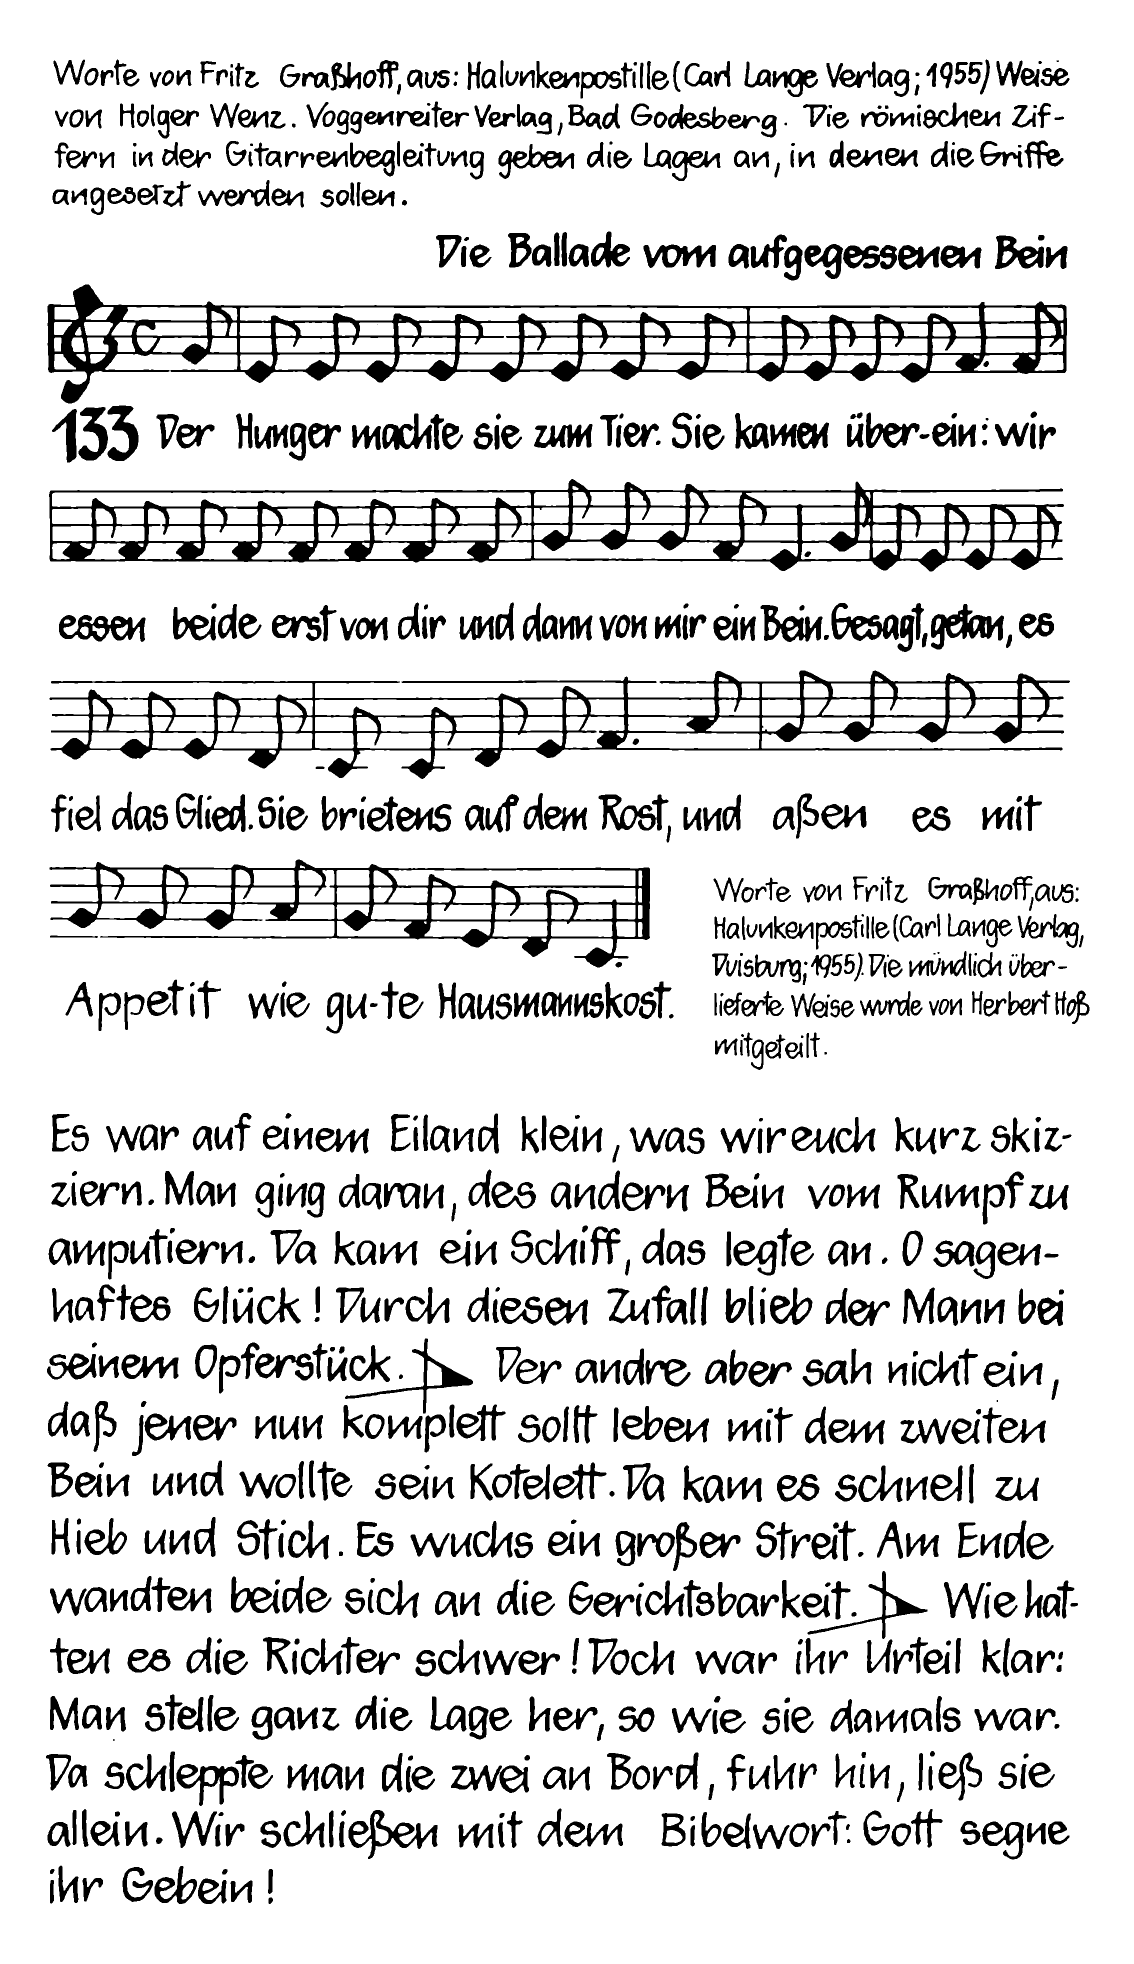 Worte von Fritz Graßhoff, aus: Halunkenpostille (Carl Lange Verlag; 1955) Weise
von Holger Wenz. Voggenreiter Verlag, Bad Godesberg. Die römischen Zif-
fern in der Gitarrenbegleitung geben die Lagen an, in denen die Griffe
angesetzt werden sollen.
Die Ballade vom aufgegessenen Bein
133 Der Hunger machte sie zum Tier. Sie kamen über-ein: wir
essen beide erst von dir und dann von mir ein Bein. Gesagt, getan, es
fiel das Glied. Sie brietens auf dem Rost, und aßen es mit
Appetit wie gu-te Hausmannskost.
Worte von Fritz Graßhoff, aus:
Halunkenpostille (Carl Lange Verlag,
Duisburg; 1955). Die mündlich über-
lieferte Weise wurde von Herbert Hoß
mitgeteilt.
Es war auf einem Eiland klein, was wir euch kurz skiz-
ziern. Man ging daran, des andern Bein vom Rumpf zu
amputiern. Da kam ein Schiff, das legte an. O sagen-
haftes Glück! Durch diesen Zufall blieb der Mann bei
seinem Opferstück. Der andre aber sah nicht ein,
daß jener nun komplett sollt leben mit dem zweiten
Bein und wollte sein Kotelett. Da kam es schnell zu
Hieb und Stich. Es wuchs ein großer Streit. Am Ende
wandten beide sich an die Gerichtsbarkeit. Wie hat-
ten es die Richter schwer! Doch war ihr Urteil klar:
Man stelle ganz die Lage her, so wie sie damals war.
Da schleppte man die zwei an Bord, fuhr hin, ließ sie
allein. Wir schließen mit dem Bibelwort: Gott segne
ihr Gebein!